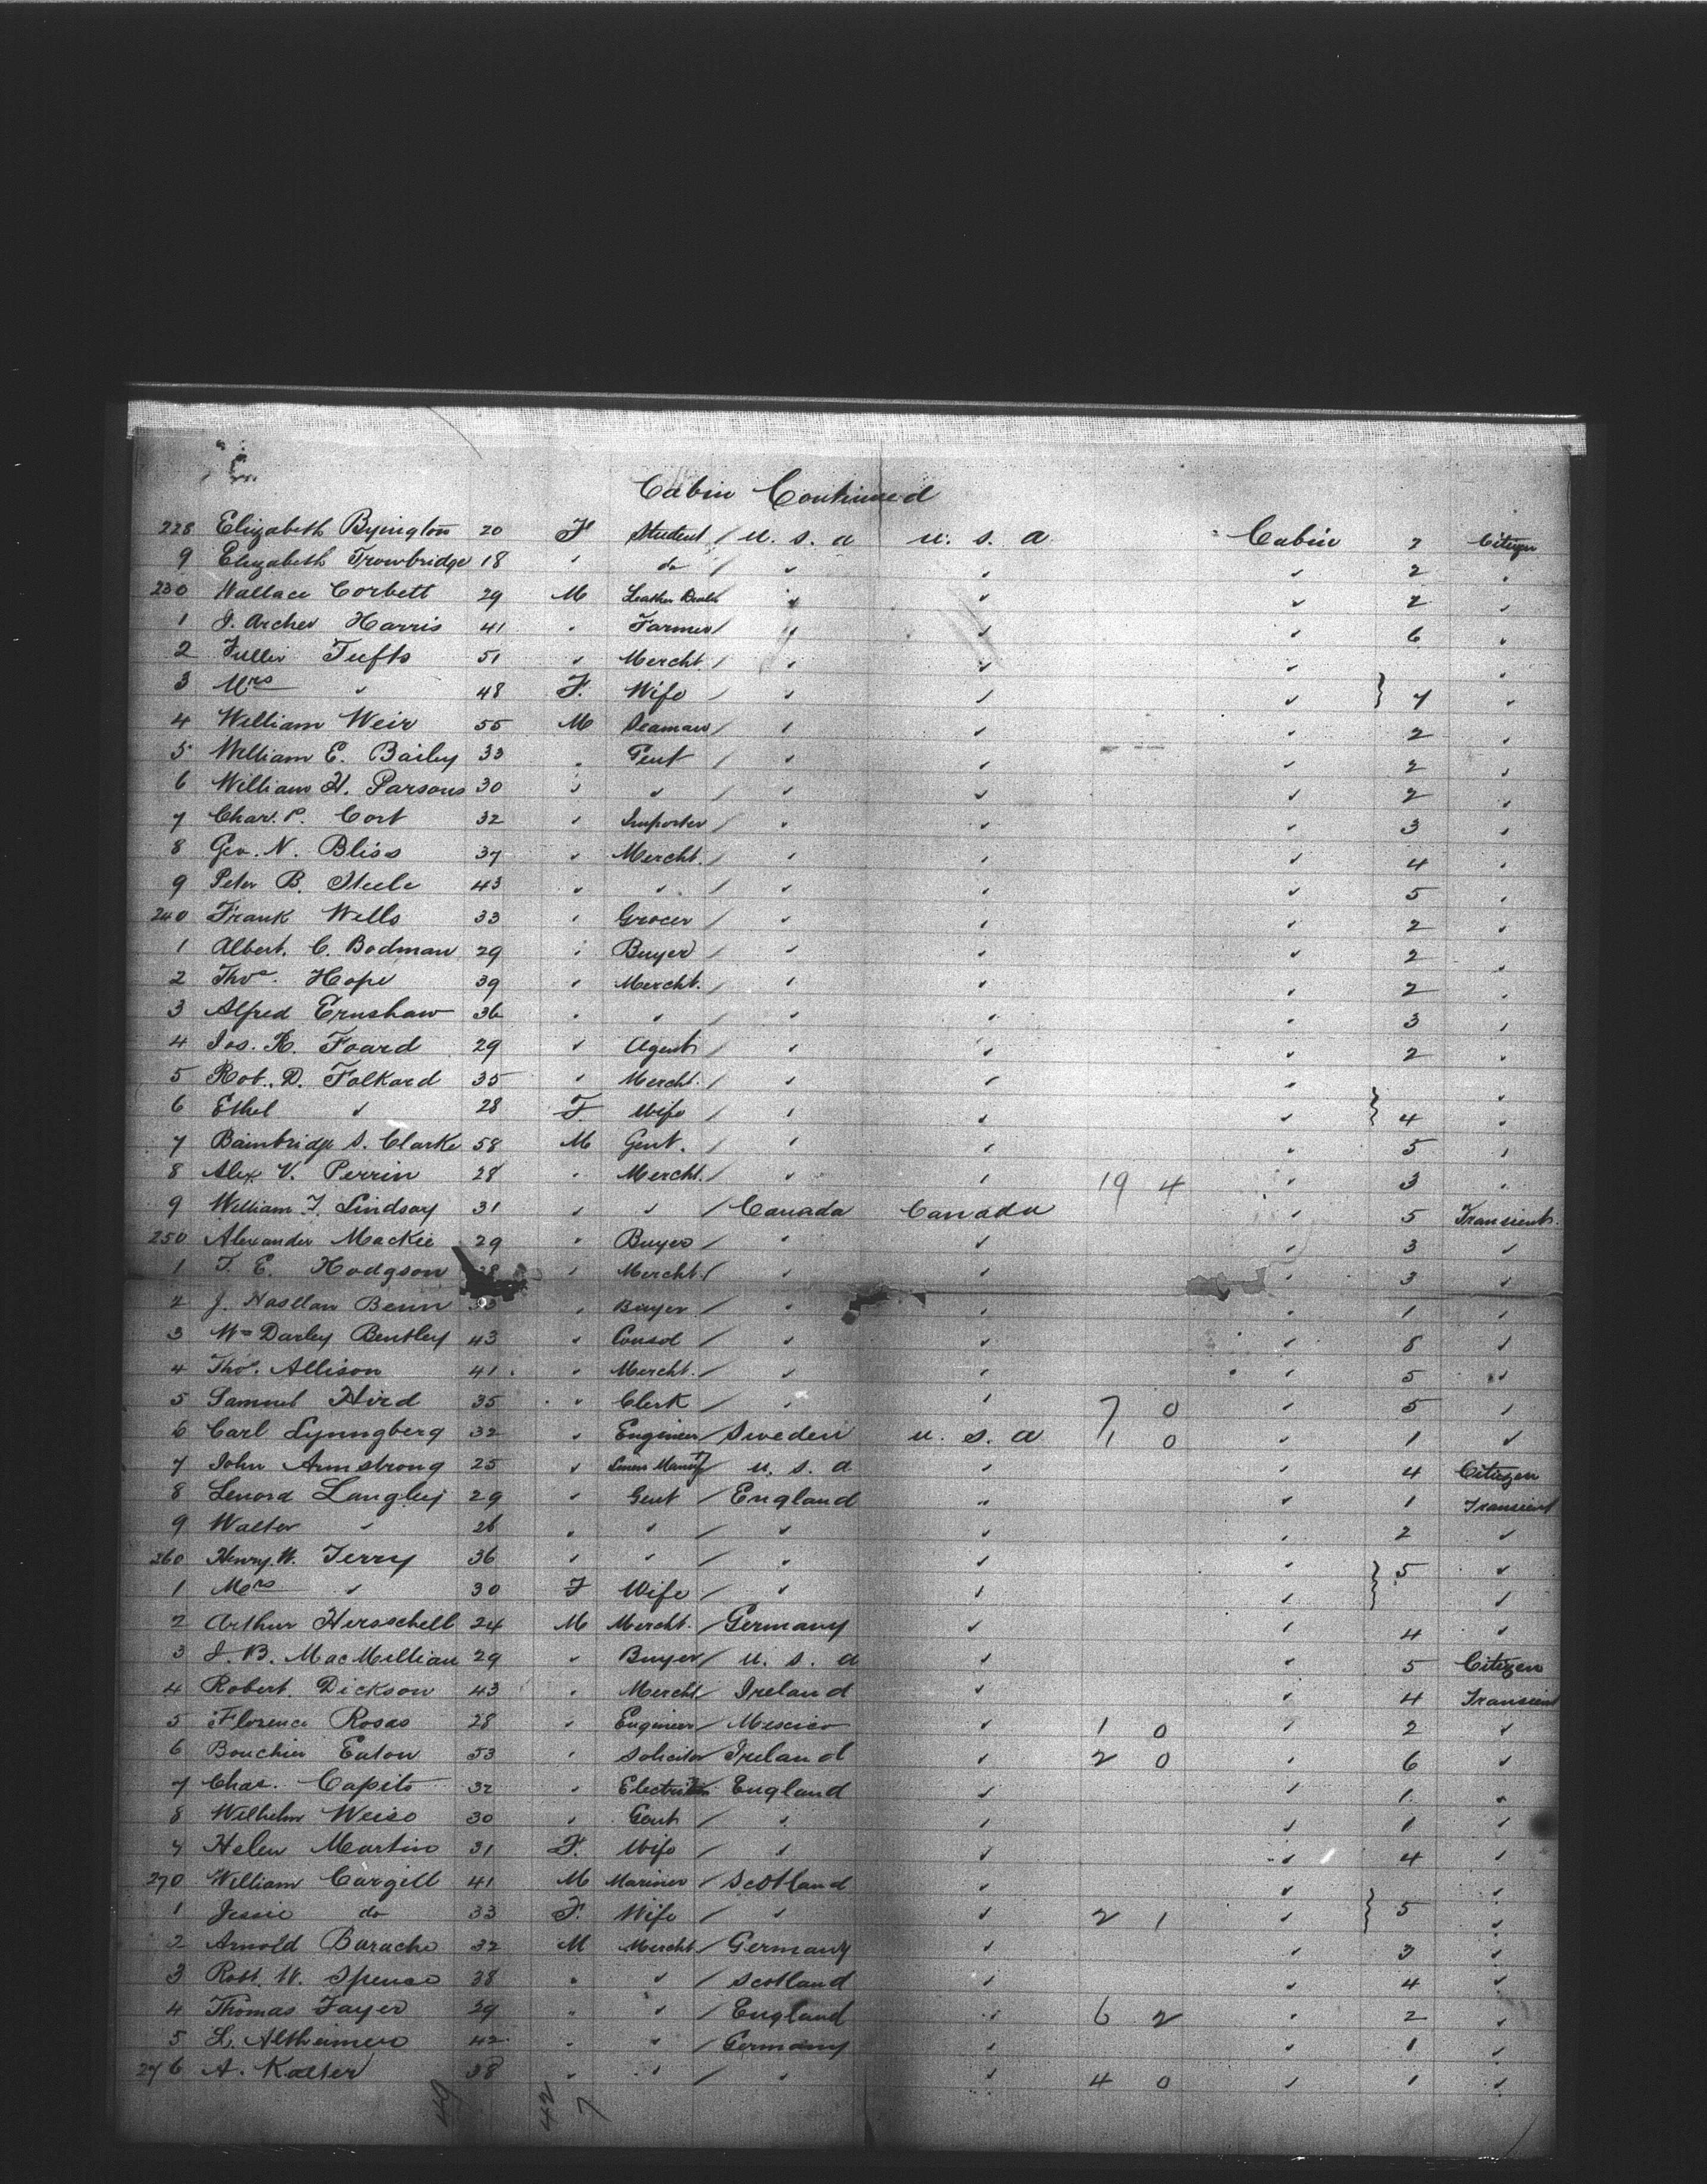 Cabin Continued
228 Elizabeth Byington 20 F Student / U. S. A U. S. A Cabin 2 Citizen
9 Elizabeth Trowbridge 18 " do / " " " 2 "
230 Wallace Corbett 29 M Leather Dealr " " " 2 "
1 J. Archer Harris 41 " Farmer / " " " 6 "
2 Fuller Tufts 51 " Mercht. / " " " "
3 Mrs " 48 F. Wife / " " " } 7 "
4 William Weir 55 M Seaman / " " " 2 "
5 William E. Baily 33 " Gent / " " " 2 "
6 William H. Parsons 30 " " / " " " 2 "
7 Char. P. Cort 32 " Importer / " " " 3 "
8 Geo. N. Bliss 37 " Mercht. / " " " 4 "
9 Peter B. Steele 43 " " / " " " 5 "
240 Frank Wells 33 " Grocer / " " " 2 "
1 Albert. C. Bodman 29 " Buyer / " " " 2 "
2 Thos. Hope 39 " Mercht. / " " " 2 "
3 Alfred Ernshaw 36 " " / " " " 3 "
4 Jos. R. Foard 29 " Agent / " " " 2 "
5 Rob. D. Folkard 35 " Mercht. / " " " "
6 Ethel " 28 F Wife / " " " } 4 "
7 Bainbridge S. Clarke 58 M Gent. / " " " 5 "
8 Alex V. Perrin 28 " Mercht. / " " 19 4 " 3 "
9 William F. Lindsay 31 " " / Canada Canada " 5 Transient.
250 Alexander Mackie 29 " Buyer / " " " 3 "
1 T. E. Hodgson " Mercht. / " " " 3 "
2 J. Benn " Buyer / " " " 1 "
3 Wm Darley Bentley 43 " Consol / " " " 8 "
4 Thos. Allison 41 " Mercht. / " " " 5 "
5 Samuel Hird 35 " Clerk / " " 7 0 " 5 "
6 Carl Lynngberg 32 " Engineer / Sweden U. S. A 1 0 " 1 "
7 John Armstrong 25 " Linen Manuf / U. S. A " " 4 Citizen
8 Lenord Langley 29 " Gent / England " " 1 Transient
9 Walter " 26 " " / " " " 2 "
260 Henry W. Terry 36 " " / " " " } 5 "
1 Mrs " 30 F Wife / " " " "
2 Arthur Hersschell 24 M Mercht. / Germany " " 4 "
3 J. B. MacMillian 29 " Buyer / U. S. A " " 5 Citizen
4 Robert. Dickson 43 " Mercht / Ireland " " 4 Transient
5 Florence Rosas 28 " Engineer / Mexico " 1 0 " 2 "
6 Bouchier Eaton 53 " Solicitor Ireland " 2 0 " 6 "
7 Chas. Capito 32 " England " " 1 "
8 Wilhelm Weiso 30 " Gent / " " " 1 "
9 Helen Martin 31 F. Wife / " " " 4 "
270 William Cargill 41 M Mariner / Scotland " " "
1 Jessie do 33 F. Wife / " " 2 1 " } 5 "
2 Arnold Baracho 32 M Mercht / Germany " " 3 "
3 Robt. W. Spense 38 " " / Scotland " " 4 "
4 Thomas Fayer 29 " " / England " 6 2 " 2 "
5 L. Altheimer 42 " " / Germany " " 1 "
276 A. Kalter 38 " " / " " 4 0 " 1 "
49 42 7